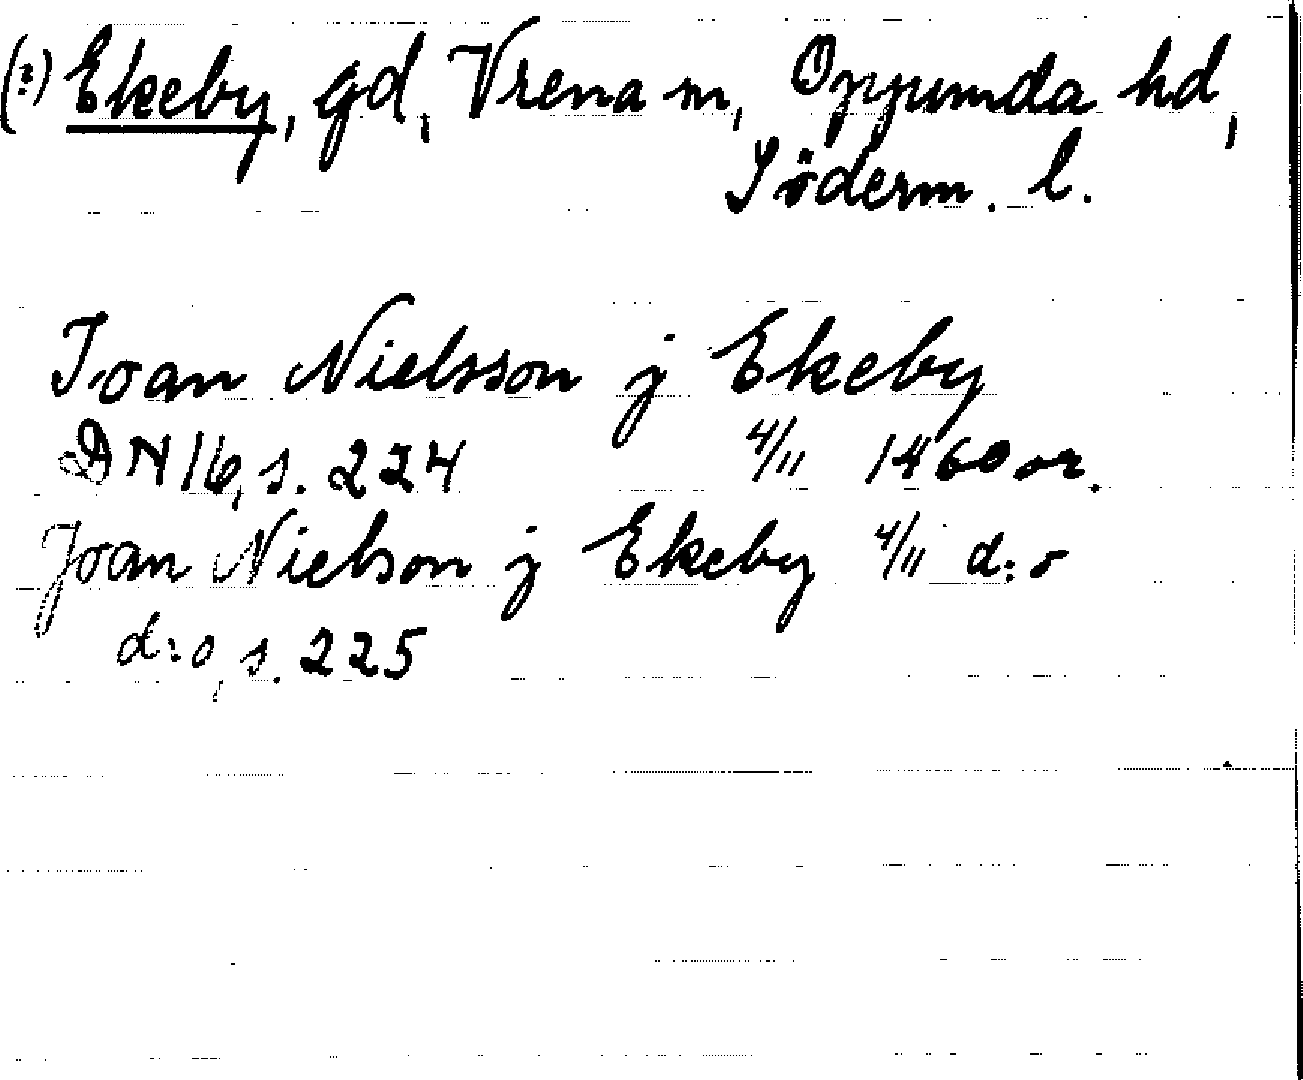 (?) Ekeby, gd, Vrena sn, Oppunda hd,
Söderm. l.
Joan Nielsson j Ekeby
DN 16, s. 224 4/11 1460 or.
Joan Nielson j Ekeby 4/11 d:o
d:o, s. 225